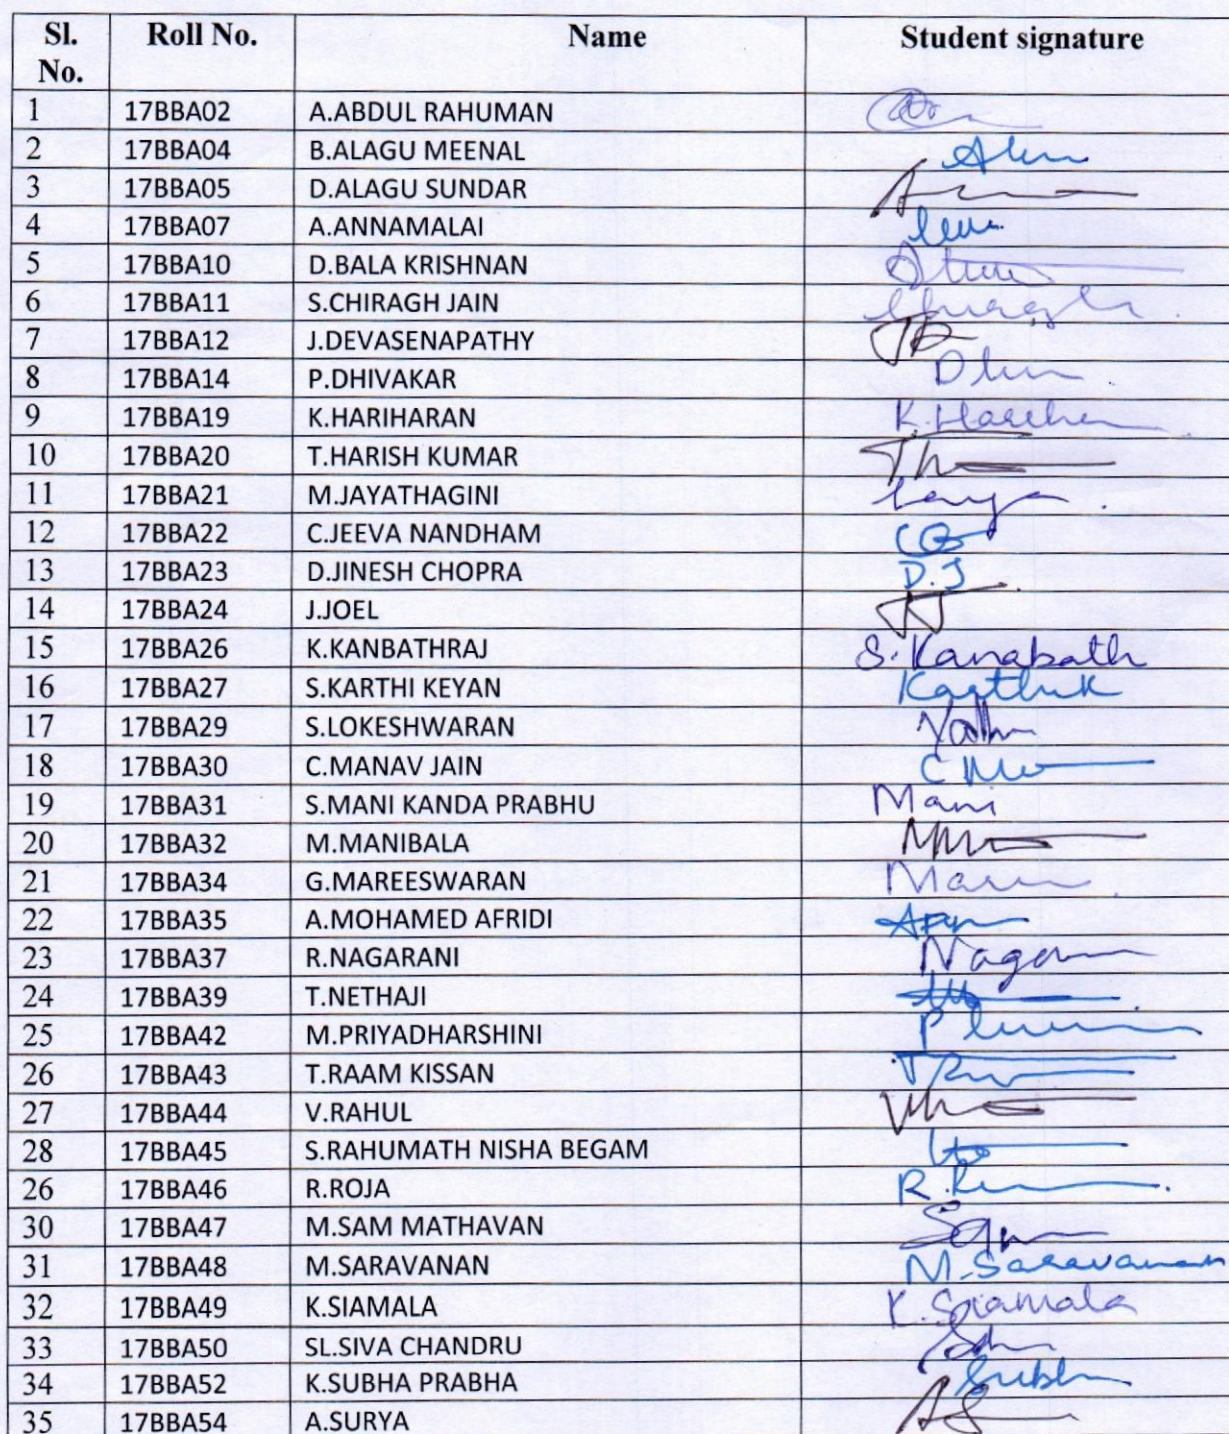 Sl. No. Roll No. Name Student signature
1 17BBA02 A.ABDUL RAHUMAN
2 17BBA04 B.ALAGU MEENAL
3 17BBA05 D.ALAGU SUNDAR
4 17BBA07 A.ANNAMALAI
5 17BBA10 D.BALA KRISHNAN
6 17BBA11 S.CHIRAGH JAIN
7 17BBA12 J.DEVASENAPATHY
8 17BBA14 P.DHIVAKAR
9 17BBA19 K.HARIHARAN
10 17BBA20 T.HARISH KUMAR
11 17BBA21 M.JAYATHAGINI
12 17BBA22 C.JEEVA NANDHAM
13 17BBA23 D.JINESH CHOPRA D.J
14 17BBA24 J.JOEL
15 17BBA26 K.KANBATHRAJ S.Kanabath
16 17BBA27 S.KARTHI KEYAN Karthik
17 17BBA29 S.LOKESHWARAN
18 17BBA30 C.MANAV JAIN
19 17BBA31 S.MANI KANDA PRABHU Mani
20 17BBA32 M.MANIBALA
21 17BBA34 G.MAREESWARAN
22 17BBA35 A.MOHAMED AFRIDI
23 17BBA37 R.NAGARANI
24 17BBA39 T.NETHAJI
25 17BBA42 M.PRIYADHARSHINI
26 17BBA43 T.RAAM KISSAN
27 17BBA44 V.RAHUL
28 17BBA45 S.RAHUMATH NISHA BEGAM
26 17BBA46 R.ROJA
30 17BBA47 M.SAM MATHAVAN
31 17BBA48 M.SARAVANAN M.Saravanan
32 17BBA49 K.SIAMALA K.Siamala
33 17BBA50 SL.SIVA CHANDRU
34 17BBA52 K.SUBHA PRABHA
35 17BBA54 A.SURYA